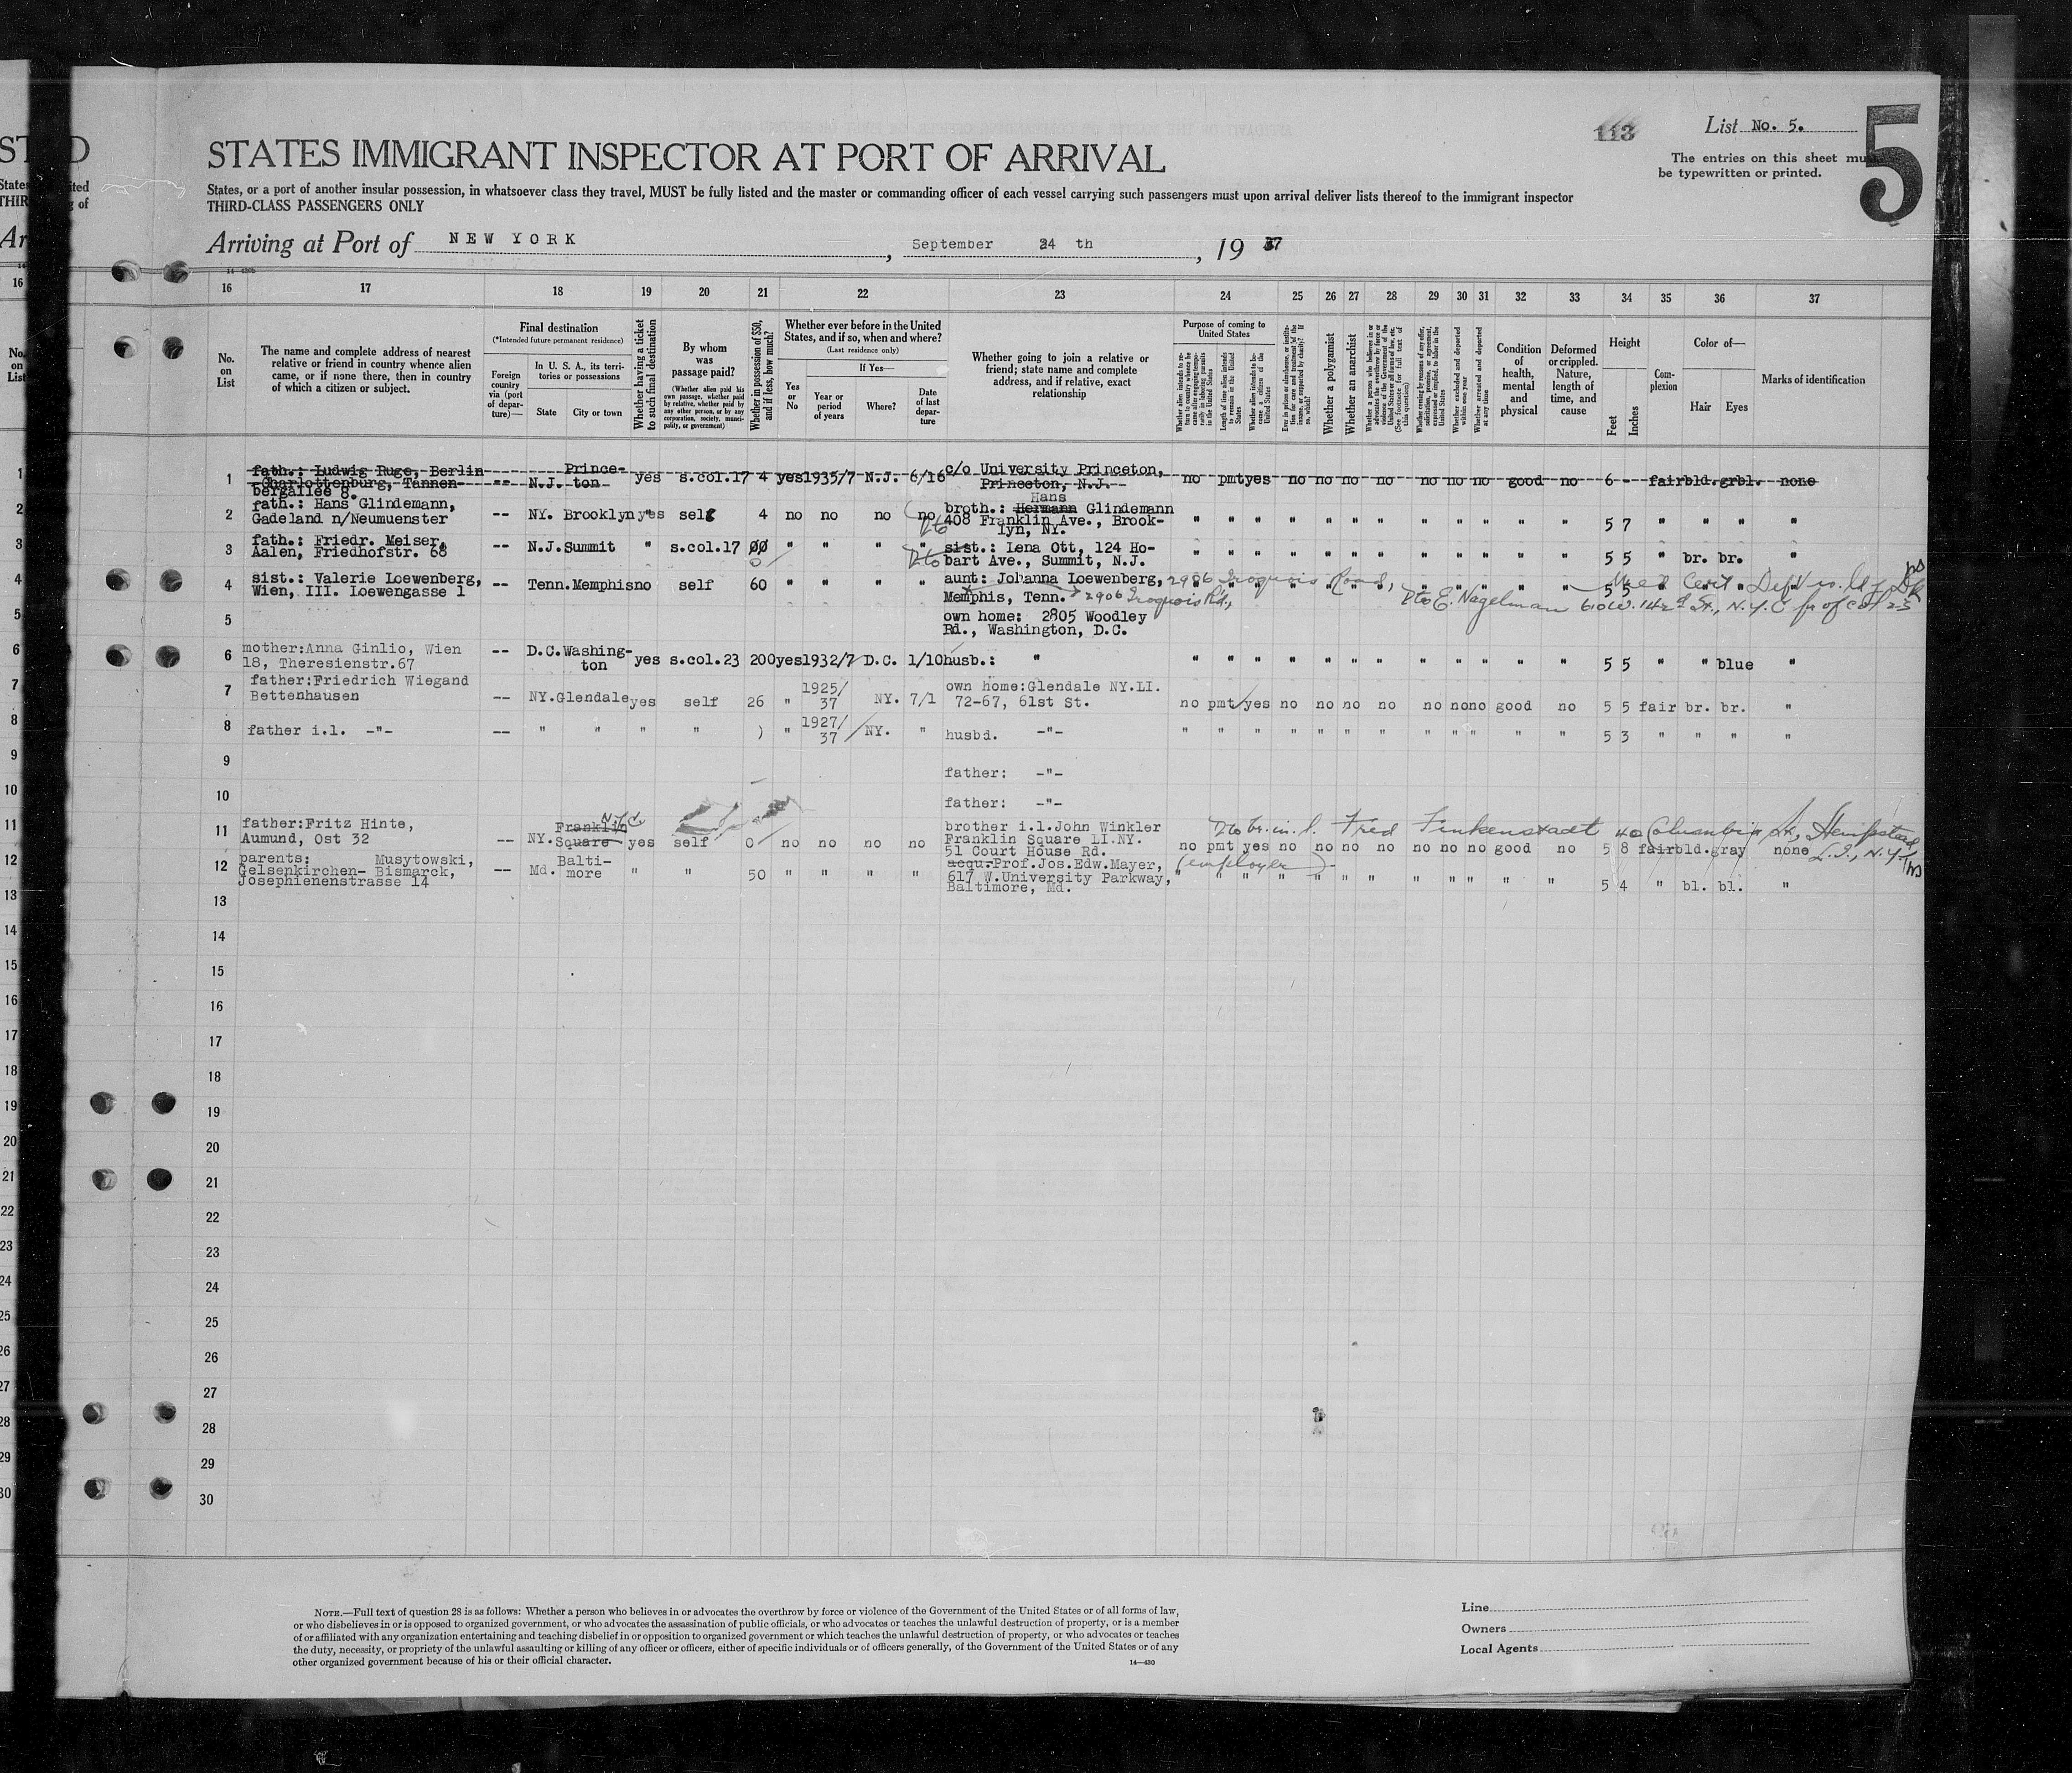 ST
States
THIR
Ar
D
ited
g of
113
List No. 5.
5
The entries on this sheet must
be typewritten or printed.
STATES IMMIGRANT INSPECTOR AT PORT OF ARRIVAL
States, or a port of another insular possession, in whatsoever class they travel, MUST be fully listed and the master or commanding officer of each vessel carrying such passengers must upon arrival deliver lists thereof to the immigrant inspector
THIRD-CLASS PASSENGERS ONLY
Arriving at Port of NEW YORK, September 24 th, 1937
16 17 18 19 20 21 22 23 24 25 26 27 28 29 30 31 32 33 34 35 36 37
No. on List
The name and complete address of nearest relative or friend in country whence alien came, or if none there, then in country of which a citizen or subject.
Final destination
(*Intended future permanent residence)
Foreign country via (port of departure)—
In U. S. A., its territories or possessions
State
City or town
Whether having a ticket to such final destination
By whom was passage paid?
(Whether alien paid his own passage, whether paid by relative, whether paid by any other person, or by any corporation, society, municipality, or government)
Whether in possession of $50, and if less, how much?
Whether ever before in the United States, and if so, when and where?
(Last residence only)
Yes or No
If Yes—
Year or period of years
Where?
Date of last departure
Whether going to join a relative or friend; state name and complete address, and if relative, exact relationship
Purpose of coming to United States
Whether alien intends to return to country whence he came after engaging temporarily in laboring pursuits in the United States
Length of time alien intends to remain in the United States
Whether alien intends to become a citizen of the United States
Whether a polygamist
Whether an anarchist
Whether excluded and deported within one year
Whether arrested and deported at any time
Condition of health, mental and physical
Deformed or crippled. Nature, length of time, and cause
Height
Feet
Inches
Complexion
Color of—
Hair
Eyes
Marks of identification
1 fath.: Ludwig Ruge, Berlin -Charlottenburg, Tannenbergallee 8. -- N.J. Princeton yes s.col.17 4 yes 1935/7 N.J. 6/16 c/o University Princeton, Princeton, N.J. no pmt yes no no no no no no no good no 6 - fair bld. grbl. none
2 fath.: Hans Glindemann, Gadeland n/Neumuenster -- NY. Brooklyn yes self 4 no no no no broth.: Hermann Hans Glindemann 408 Franklin Ave., Brooklyn, NY. " " " " " " " " " " " " 5 7 " " " "
3 fath.: Friedr. Meiser, Aalen, Friedhofstr. 68 -- N.J. Summit " s.col.17 00 " " " " sist.: Lena Ott, 124 Hobart Ave., Summit, N.J. " " " " " " " " " " " " 5 5 " br. br. "
4 sist.: Valerie Loewenberg, Wien, III. Loewengasse 1 -- Tenn. Memphis no self 60 " " " " aunt: Johanna Loewenberg, Memphis, Tenn. 2906 Iroquois Rd., 5 5
2906 Iroquois Road,
E. Nagelman 610 W. 142d St., N.Y.C
5 own home: 2805 Woodley Rd., Washington, D.C.
6 mother:Anna Ginlio, Wien 18, Theresienstr.67 -- D.C. Washington yes s.col.23 200 yes 1932/7 D.C. 1/10 husb.: " " " " " " " " " " " " " 5 5 " " blue "
7 father:Friedrich Wiegand Bettenhausen -- NY. Glendale yes self 26 " 1925/37 NY. 7/1 own home:Glendale NY.LI. 72-67, 61st St. no pmt yes no no no no no no no good no 5 5 fair br. br. "
8 father i.l. -"- -- " " " " ) " 1927/37 NY. " husbd. -"- " " " " " " " " " " " " 5 3 " " " "
9 father: -"-
10 father: -"-
11 father:Fritz Hinte, Aumund, Ost 32 -- NY. Franklin Square N.Y.C. yes self 0 no no no no brother i.l.John Winkler Franklin Square LI.NY. 51 Court House Rd. no pmt yes no no no no no no no good no 5 8 fair bld. gray none
br. in. l. Fred Finkenstadt 40 Columbia St., Hempstead L.I., N.Y.
12 parents: Musytowski, Gelsenkirchen- Bismarck, Josephienenstrasse 14 -- Md. Baltimore " " 50 " " " " acqu.Prof.Jos.Edw.Mayer, 617 W.University Parkway, Baltimore, Md. (employer) " " " " " " " " " " " " 5 4 " bl. bl. "
13
14
15
16
17
18
19
20
21
22
23
24
25
26
27
28
29
30
NOTE.—Full text of question 28 is as follows: Whether a person who believes in or advocates the overthrow by force or violence of the Government of the United States or of all forms of law,
or who disbelieves in or is opposed to organized government, or who advocates the assassination of public officials, or who advocates or teaches the unlawful destruction of property, or is a member
of or affiliated with any organization entertaining and teaching disbelief in or opposition to organized government or which teaches the unlawful destruction of property, or who advocates or teaches
the duty, necessity, or propriety of the unlawful assaulting or killing of any officer or officers, either of specific individuals or of officers generally, of the Government of the United States or of any
other organized government because of his or their official character.
14—430
Line
Owners
Local Agents